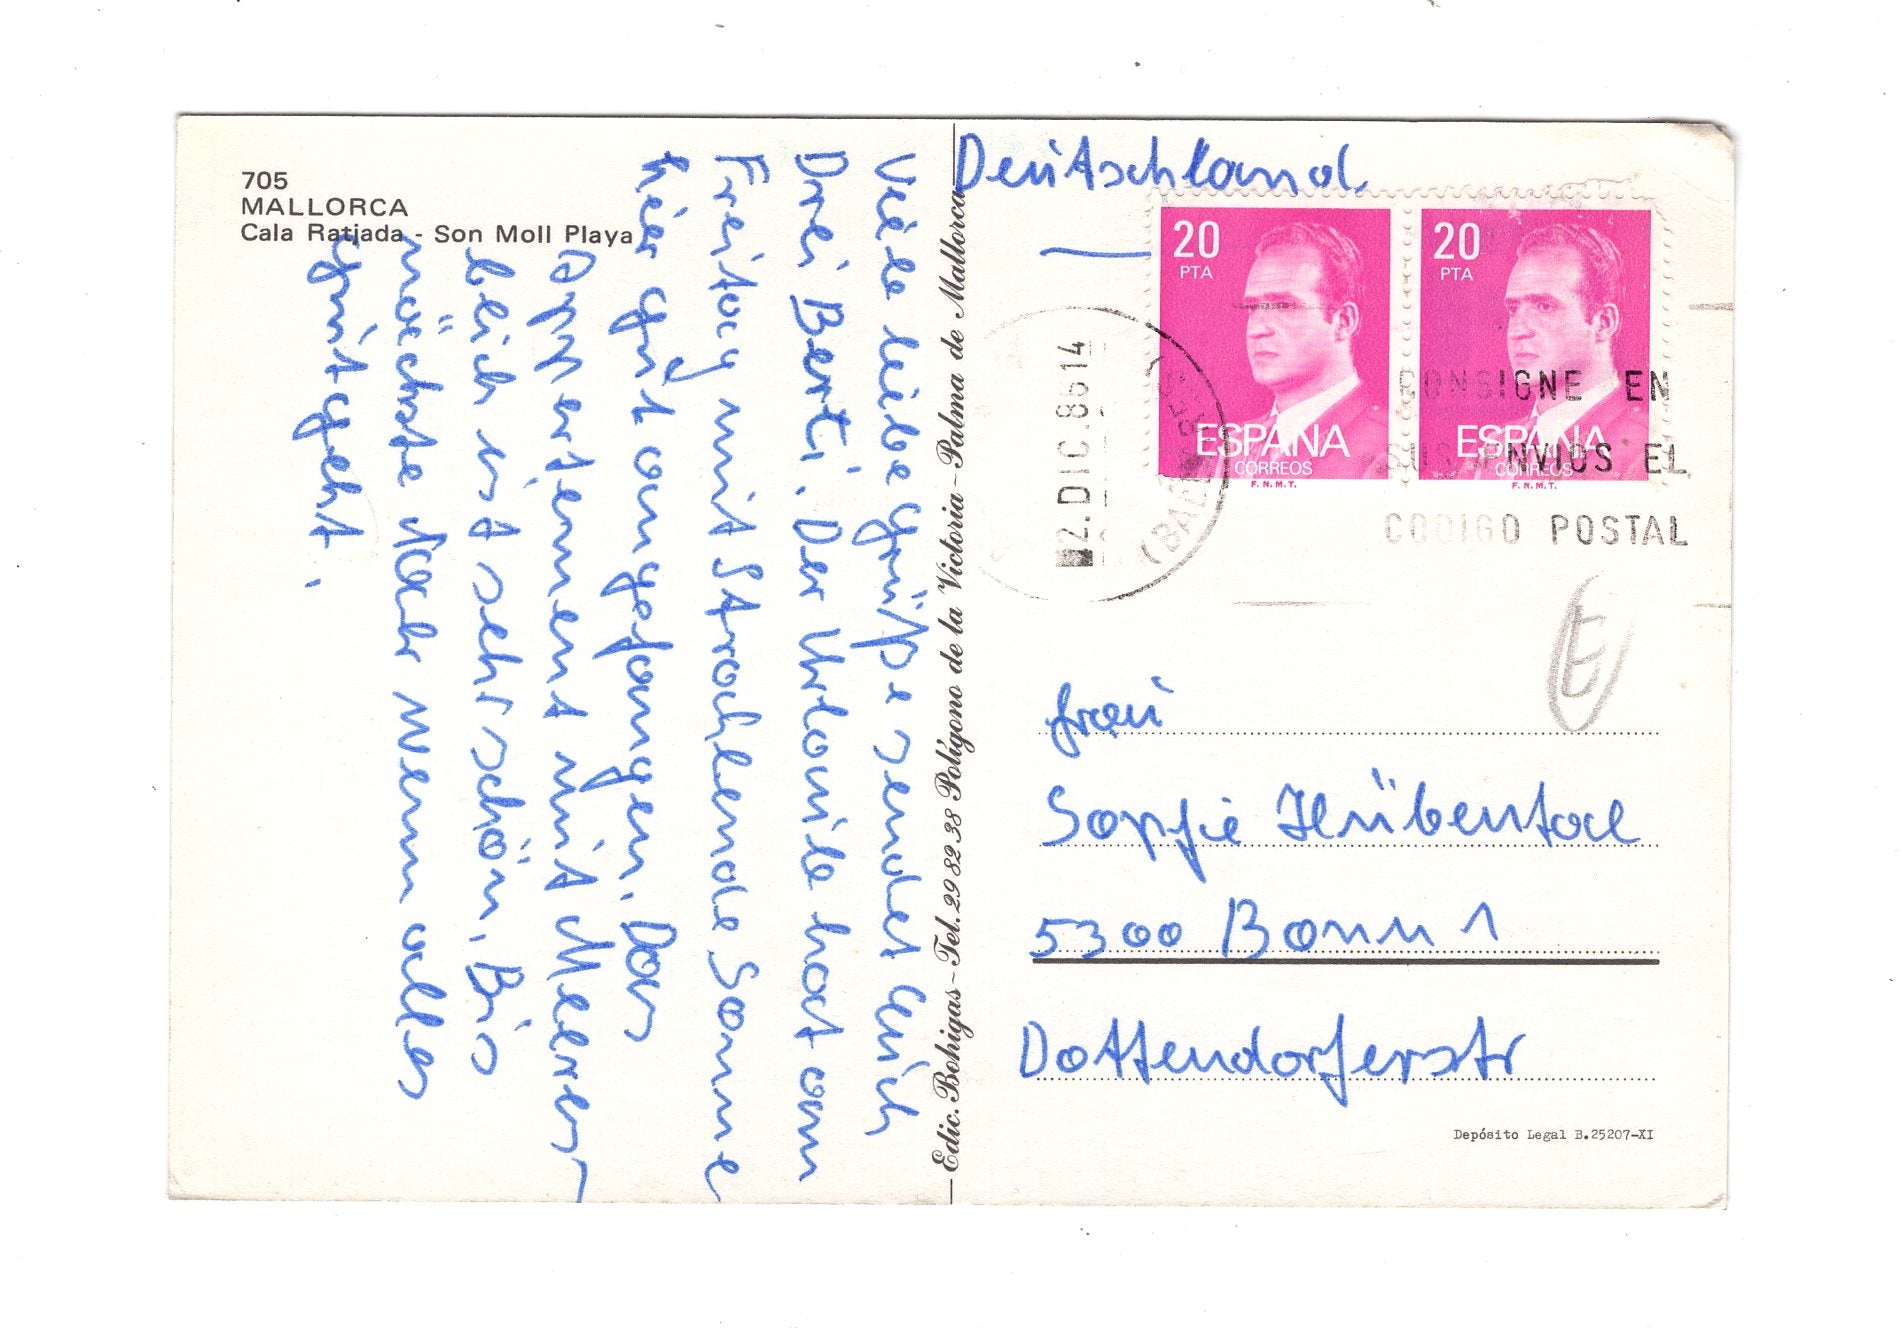 705
MALLORCA
Cala Ratjada - Son Moll Playa
Viele liebe Grüße sendet Euch
Drei Berti. Der Urlaub hat am
Freitag mit Strahlende Sonne
hier gut angefangen. Das
Appertement mit Meeres-
blick ist sehr schön. Bis
nächste Jahr wenn alles
gut geht.
Edic. Bohigas - Tel. 29 82 38 Polígono de la Victoria - Palma de Mallorca
Deutschland
20
PTA
ESPAÑA
CORREOS
F.N.M.T.
20
PTA
ESPAÑA
CORREOS
F.N.M.T.
2. DIC. 86 14
CONSIGNE EN
SUS ENVIOS EL
CODIGO POSTAL
Frau
Sopfie Hübental
5300 Bonn 1
Dottendorferstr
Depósito Legal B.25207-XI